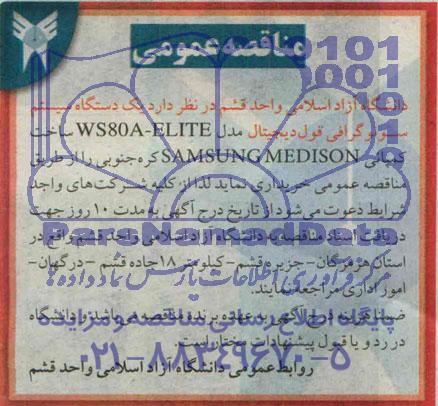 مناقصه عمومی
دانشگاه آزاد اسلامی واحد قشم در نظر دارد یک دستگاه سیستم
سونوگرافی فول دیجیتال مدل WS80A-ELITE ساخت
کمپانی SAMSUNG MEDISON کره جنوبی را از طریق
مناقصه عمومی خریداری نماید لذا از کلیه شرکت های واجد
شرایط دعوت می شود از تاریخ درج آگهی به مدت ۱۰ روز جهت
دریافت اسناد مناقصه به دانشگاه آزاد اسلامی واحد قشم واقع در
استان هرمزگان - جزیره قشم - کیلومتر ۱۸ جاده قشم - درگهان -
امور اداری مراجعه نمایند.
ضمنا هزینه درج آگهی به عهده برنده مناقصه می باشد و دانشگاه
در رد و یا قبول پیشنهادات مختار است.
روابط عمومی دانشگاه آزاد اسلامی واحد قشم
پایگاه اطلاع رسانی مناقصه و مزایده
۰۲۱-۸۸۳۴۹۶۷۰-۵